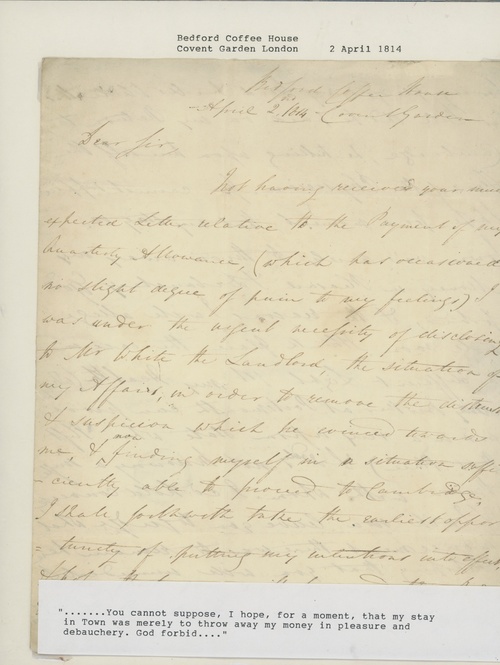 Bedford Coffee House
Covent Garden London 2 April 1814
Bedford Coffee House
April 2nd 1814 - Covent Garden
Dear Sir
Not having received your much
expected Letter relative to the Payment of my
Quarterly Allowance, (which has occasioned
no slight degree of pain to my feelings) I
was under the urgent necessity of disclosing
to Mr White the Landlord, the situation of
my Affairs, in order to remove the distrust
& suspicion which he evinced towards
me, & now finding myself in a situation suffi
-ciently able to proceed to Cambridge,
I shall forthwith take the earliest oppor
-tunity of putting my intentions into effect,
".......You cannot suppose, I hope, for a moment, that my stay
in Town was merely to throw away my money in pleasure and
debauchery. God forbid...."